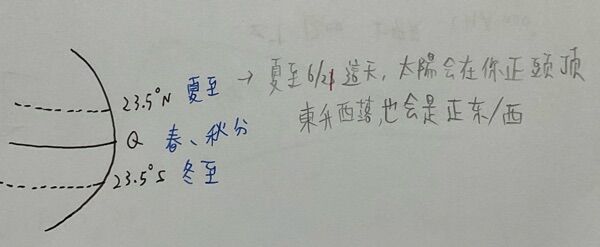 23.5°N 夏至 → 夏至6/21這天，太陽会在你正頭頂
東升西落,也会是正东/西
Q 春、秋分
23.5°S 冬至